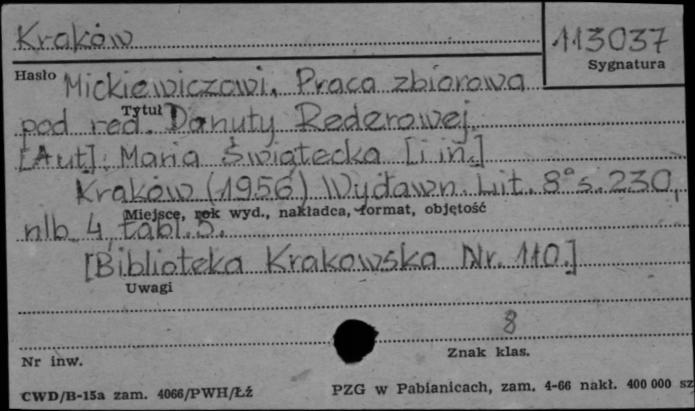 Kraków
113037
Hasło
Sygnatura
Mickiewiczowi. Praca zbiorowa
Tytuł
pod red. Danuty Rederowej.
[Aut]: Maria Świątecka [i in.]
Kraków (1956) Wydawn. Lit. 8° s. 230,
Miejsce, rok wyd., nakładca, format, objętość
nlb. 4, tabl. 5.
[Biblioteka Krakowska Nr. 110.]
Uwagi
8
Nr inw.
Znak klas.
CWD/B-15a zam. 4066/PWH/Łź
PZG w Pabianicach, zam. 4-66 nakł. 400 000 sz